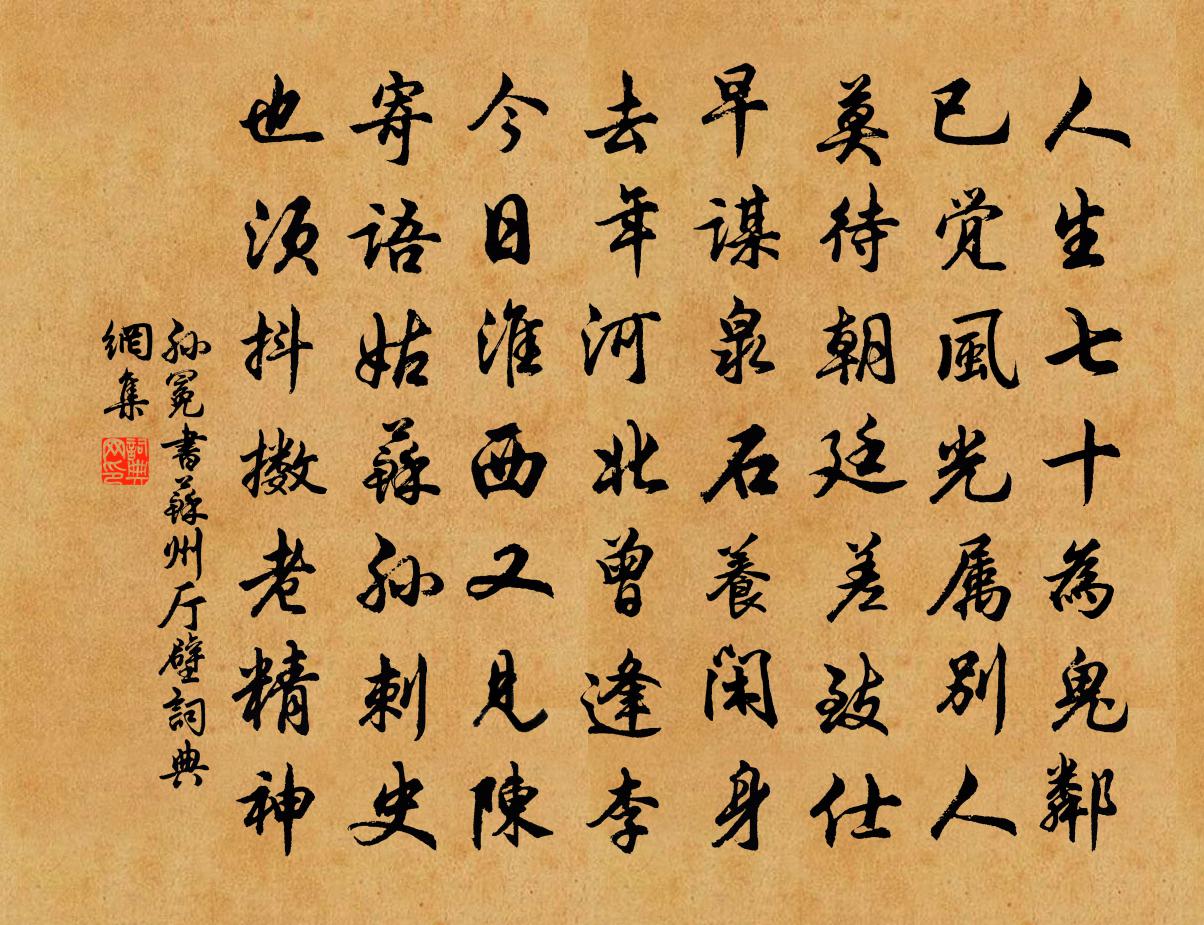 人生七十為鬼鄰
已觉風光属別人
莫待朝廷差致仕
早謀泉石養閑身
去年河北曾逢李
今日淮西又見陳
寄語姑蘇孙刺史
也須抖擻老精神
孙冕書蘇州厅壁詞典
網集
詞典
网印